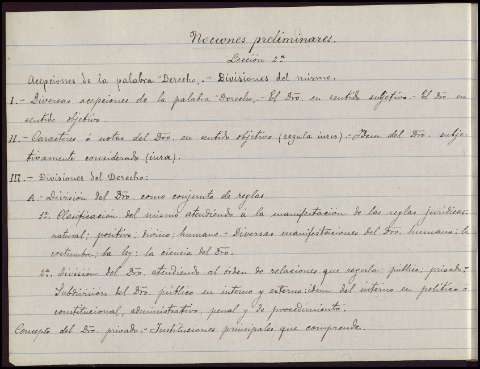 Nociones preliminares.
Lección 2ª
Acepciones de la palabra Derecho.- Divisiones del mismo.
I.- Diversas acepciones de la palabra Derecho.- El Dro. en sentido subjetivo.- El Dro. en
sentido objetivo.
II.- Caracteres ó notas del Dro. en sentido objetivo (regula iuris).- Idem del Dro. subje-
tivamente considerado (iura).
III.- Divisiones del Derecho:
A.- División del Dro. como conjunto de reglas
1º. Clasificación del mismo atendiendo a la manifestación de las reglas jurídicas:
natural; positivo; divino; humano.- Diversas manifestaciones del Dro. humano: la
costumbre; la ley; la ciencia del Dro.
2º. División del Dro. atendiendo al orden de relaciones que regula: público; privado.-
Subdivisión del Dro. público en interno y externo: idem del interno en político o
constitucional, administrativo, penal y de procedimiento.
Concepto del Dro. privado.- Instituciones principales que comprende.